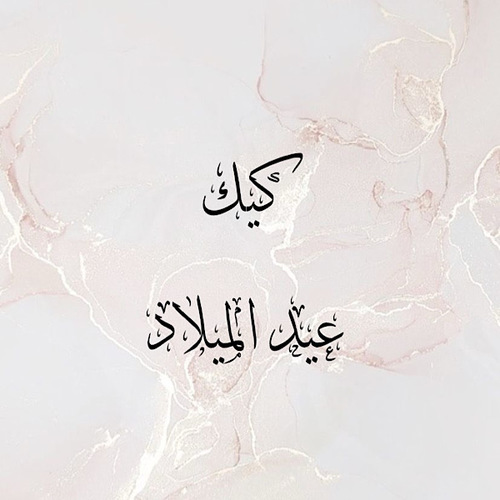 كيك
عيد الميلاد